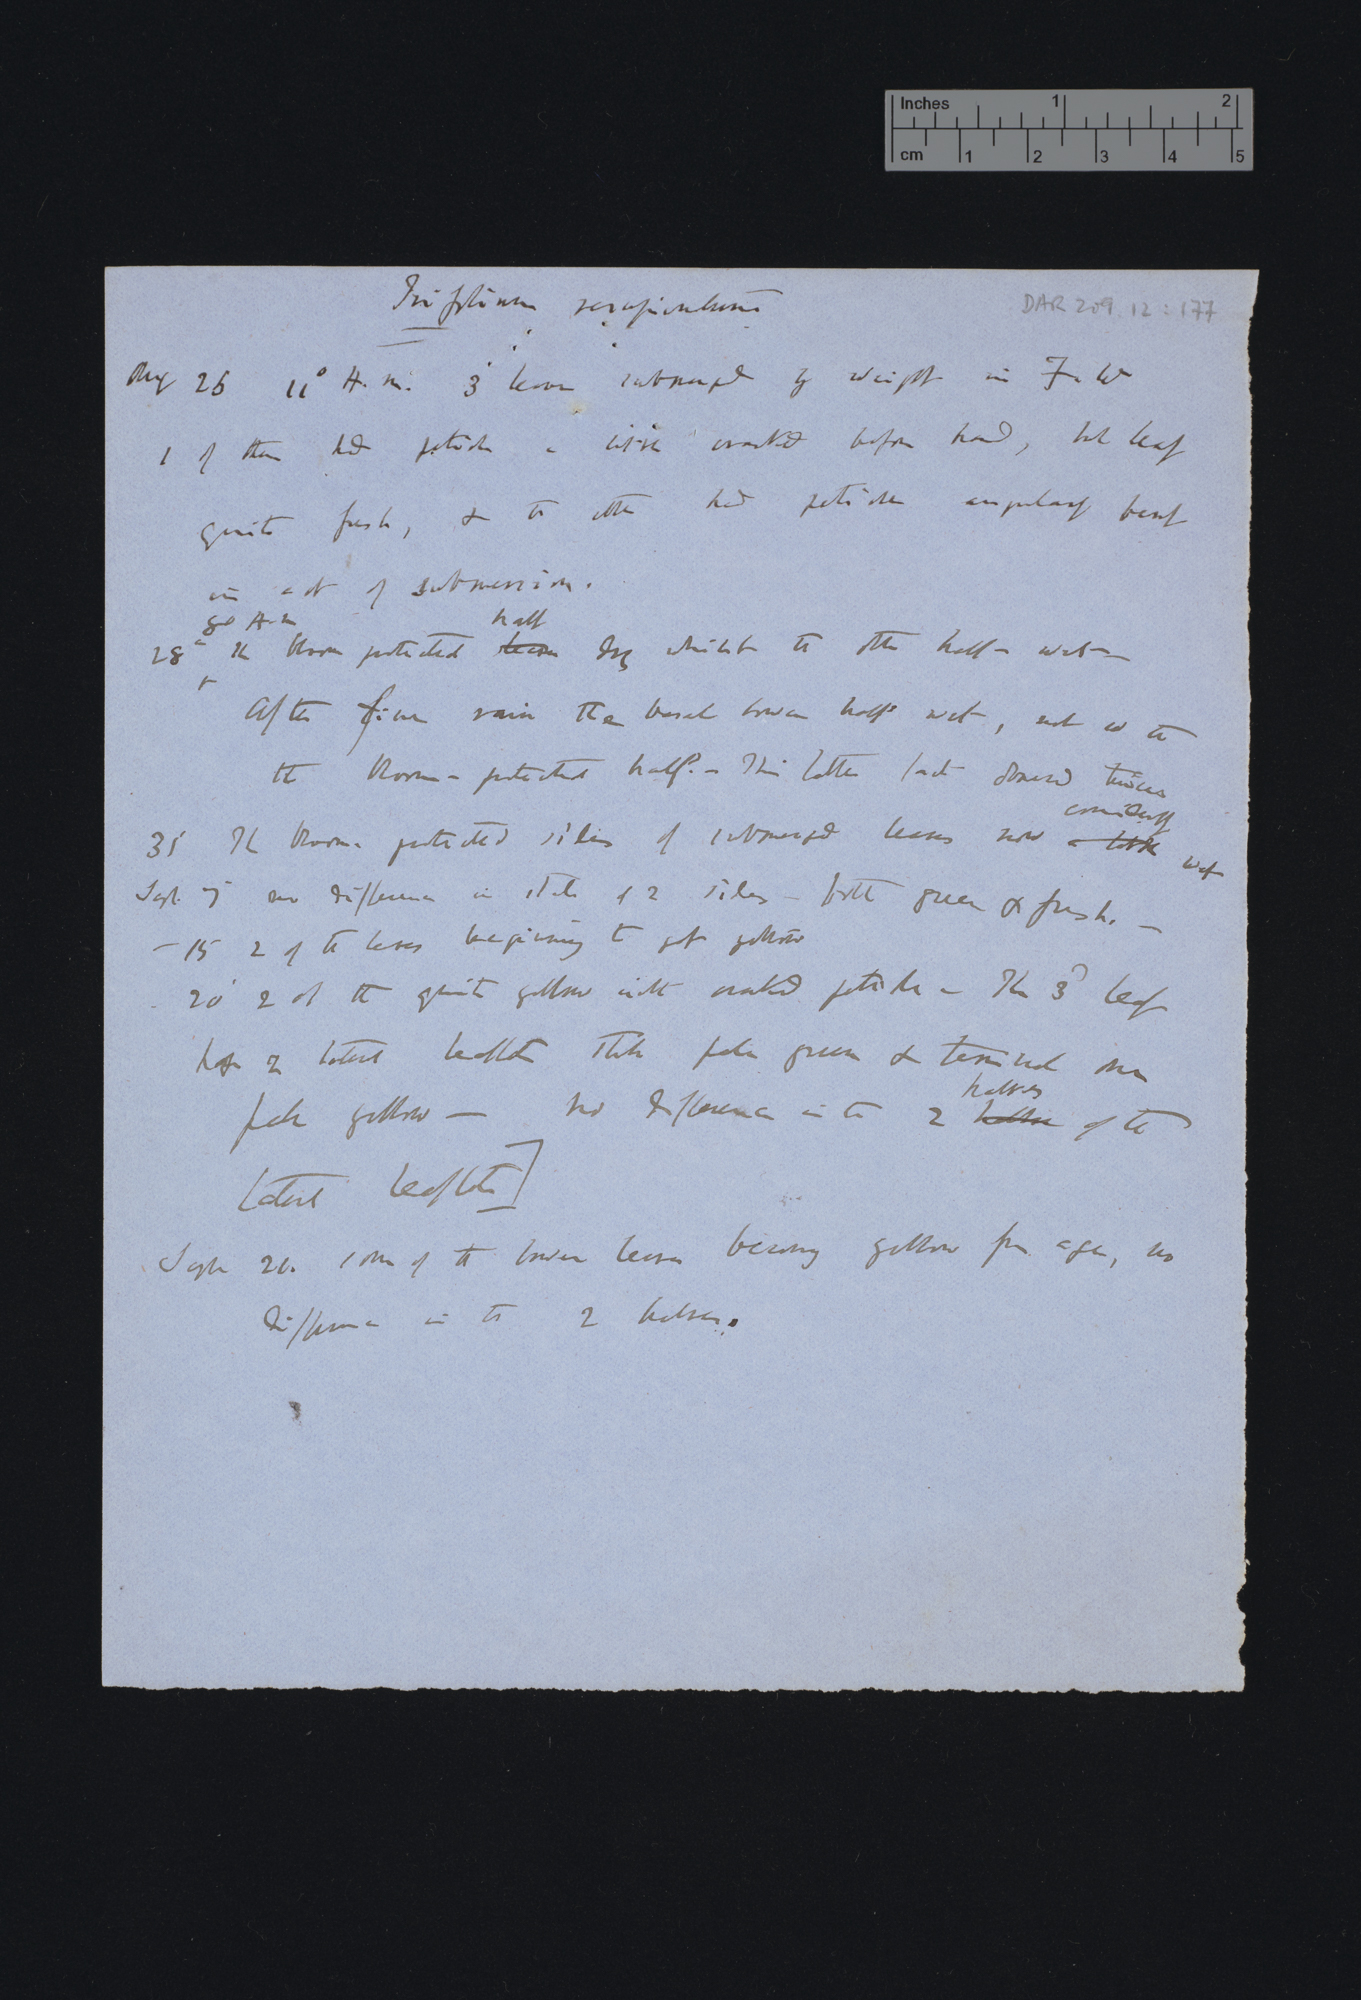 Inches 1 2
cm 1 2 3 4 5
DAR 209.12:177
Trifolium resupinatum
Aug 26 11° A.m. 3 leaves submerged by weight in Field
1 of them had petiole a little cracked before hand, but leaf
quite fresh, & the other had petioles angularly bent
in act of submersion.
8° A.m half
28th The bloom protected leaves dry whilst the other half wet—
After fine rain the basal lower half wet, not so the
the bloom-protected half.— This latter fact observed twice
considerably
31 The bloom-protected sides of submerged leaves now a little wet
Sept. 5 no difference in state of 2 sides— both green & fresh.—
— 15 2 of the leaves beginning to get yellow
20 2 of the quite yellow with cracked petioles— The 3d leaf
has 2 lateral leaflets still pale green & terminal one
halves
pale yellow— No difference in the 2 of the
lateral leaflets]
Sept 20. some of the lower leaves becoming yellow from age, no
difference in the 2 halves.